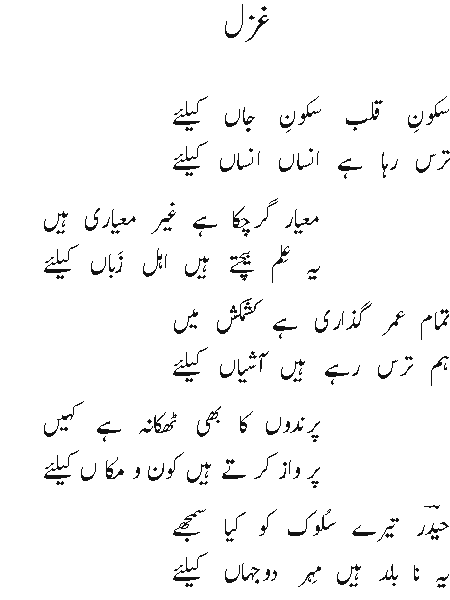 غزل
سکونِ قلب سکونِ جاں کیلئے
ترس رہا ہے انساں انساں کیلئے
معیار گرچکا ہے غیر معیاری ہیں
یہ عِلم بیچتے ہیں اہل زَباں کیلئے
تمام عمر گذاری ہے کشمکش میں
ہم ترس رہے ہیں آشیاں کیلئے
پرندوں کا بھی ٹھکانہ ہے کہیں
پر واز کر تے ہیں کون و مکا ں کیلئے
حیدؔر تیرے سلُوک کو کیا سمجھے
یہ نا بلد ہیں مِہر دوجہاں کیلئے